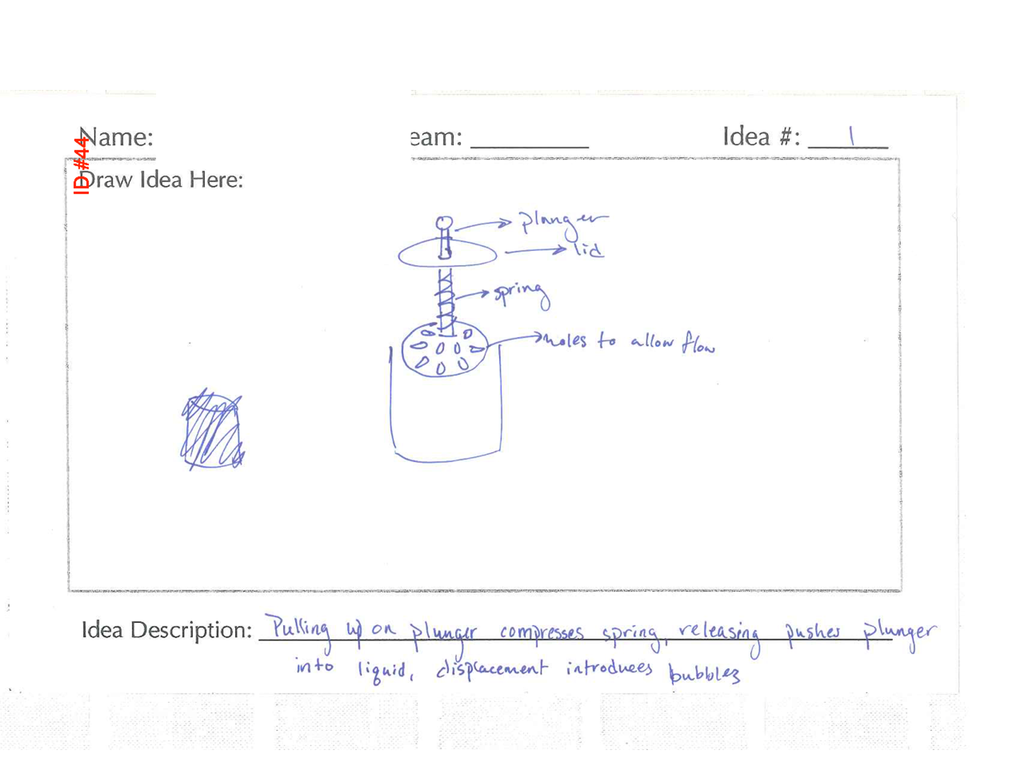 Name:
eam:
Idea #: 1
ID #44
Draw Idea Here:
plunger
lid
spring
holes to allow flow
Idea Description: Pulling up on plunger compresses spring, releasing pushes plunger
into liquid, displacement introduces bubbles